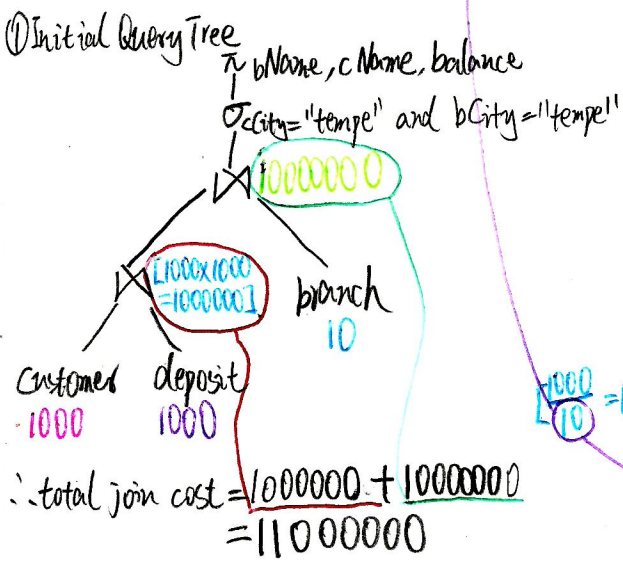 ①Initial Query Tree
π bName, cName, balance
σcCity="tempe" and bCity="tempe"
⋈ 10000000
⋈ [1000x1000
=1000000]
branch
10
customer deposit
1000 1000
[1000
10
=1
∴total join cost=1000000+10000000
=11000000